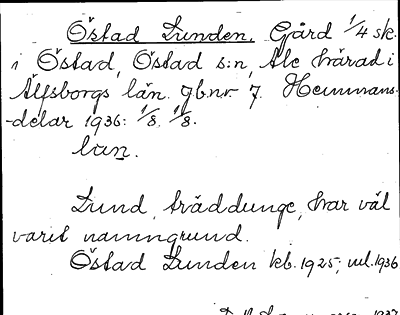 Östad Lunden, Gård 1/4 sk.
i Östad, Östad s:n, Ale härad i
Älfsborgs län. Jb.nr 7. Hemmans-
-delar 1936: 1/8, 1/8.
lun.
Lund, träddunge, har väl
varit namngrund.
Östad Lunden kb. 1925; ml. 1936
1937